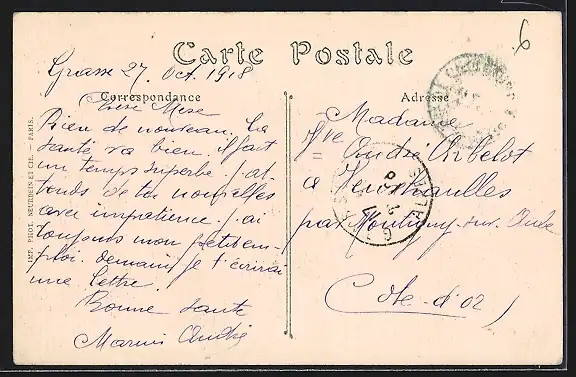 6
Carte Postale
Grasse 27 Oct. 1918
Correspondance
Chère Mère
Rien de nouveau. La
santé va bien il fait
un temps superbe. j'at-
tends de tes nouvelles
avec impatience. j'ai
toujours mon petit em-
ploi. demain je t'écrirai
une lettre.
Bonne santé
Marius André
Adresse
Madame
Vve André Arbelot
à
par Montigny-sur-
Côte-d'Or)
IMP. PHOT. NEURDEIN ET CIE. — PARIS.